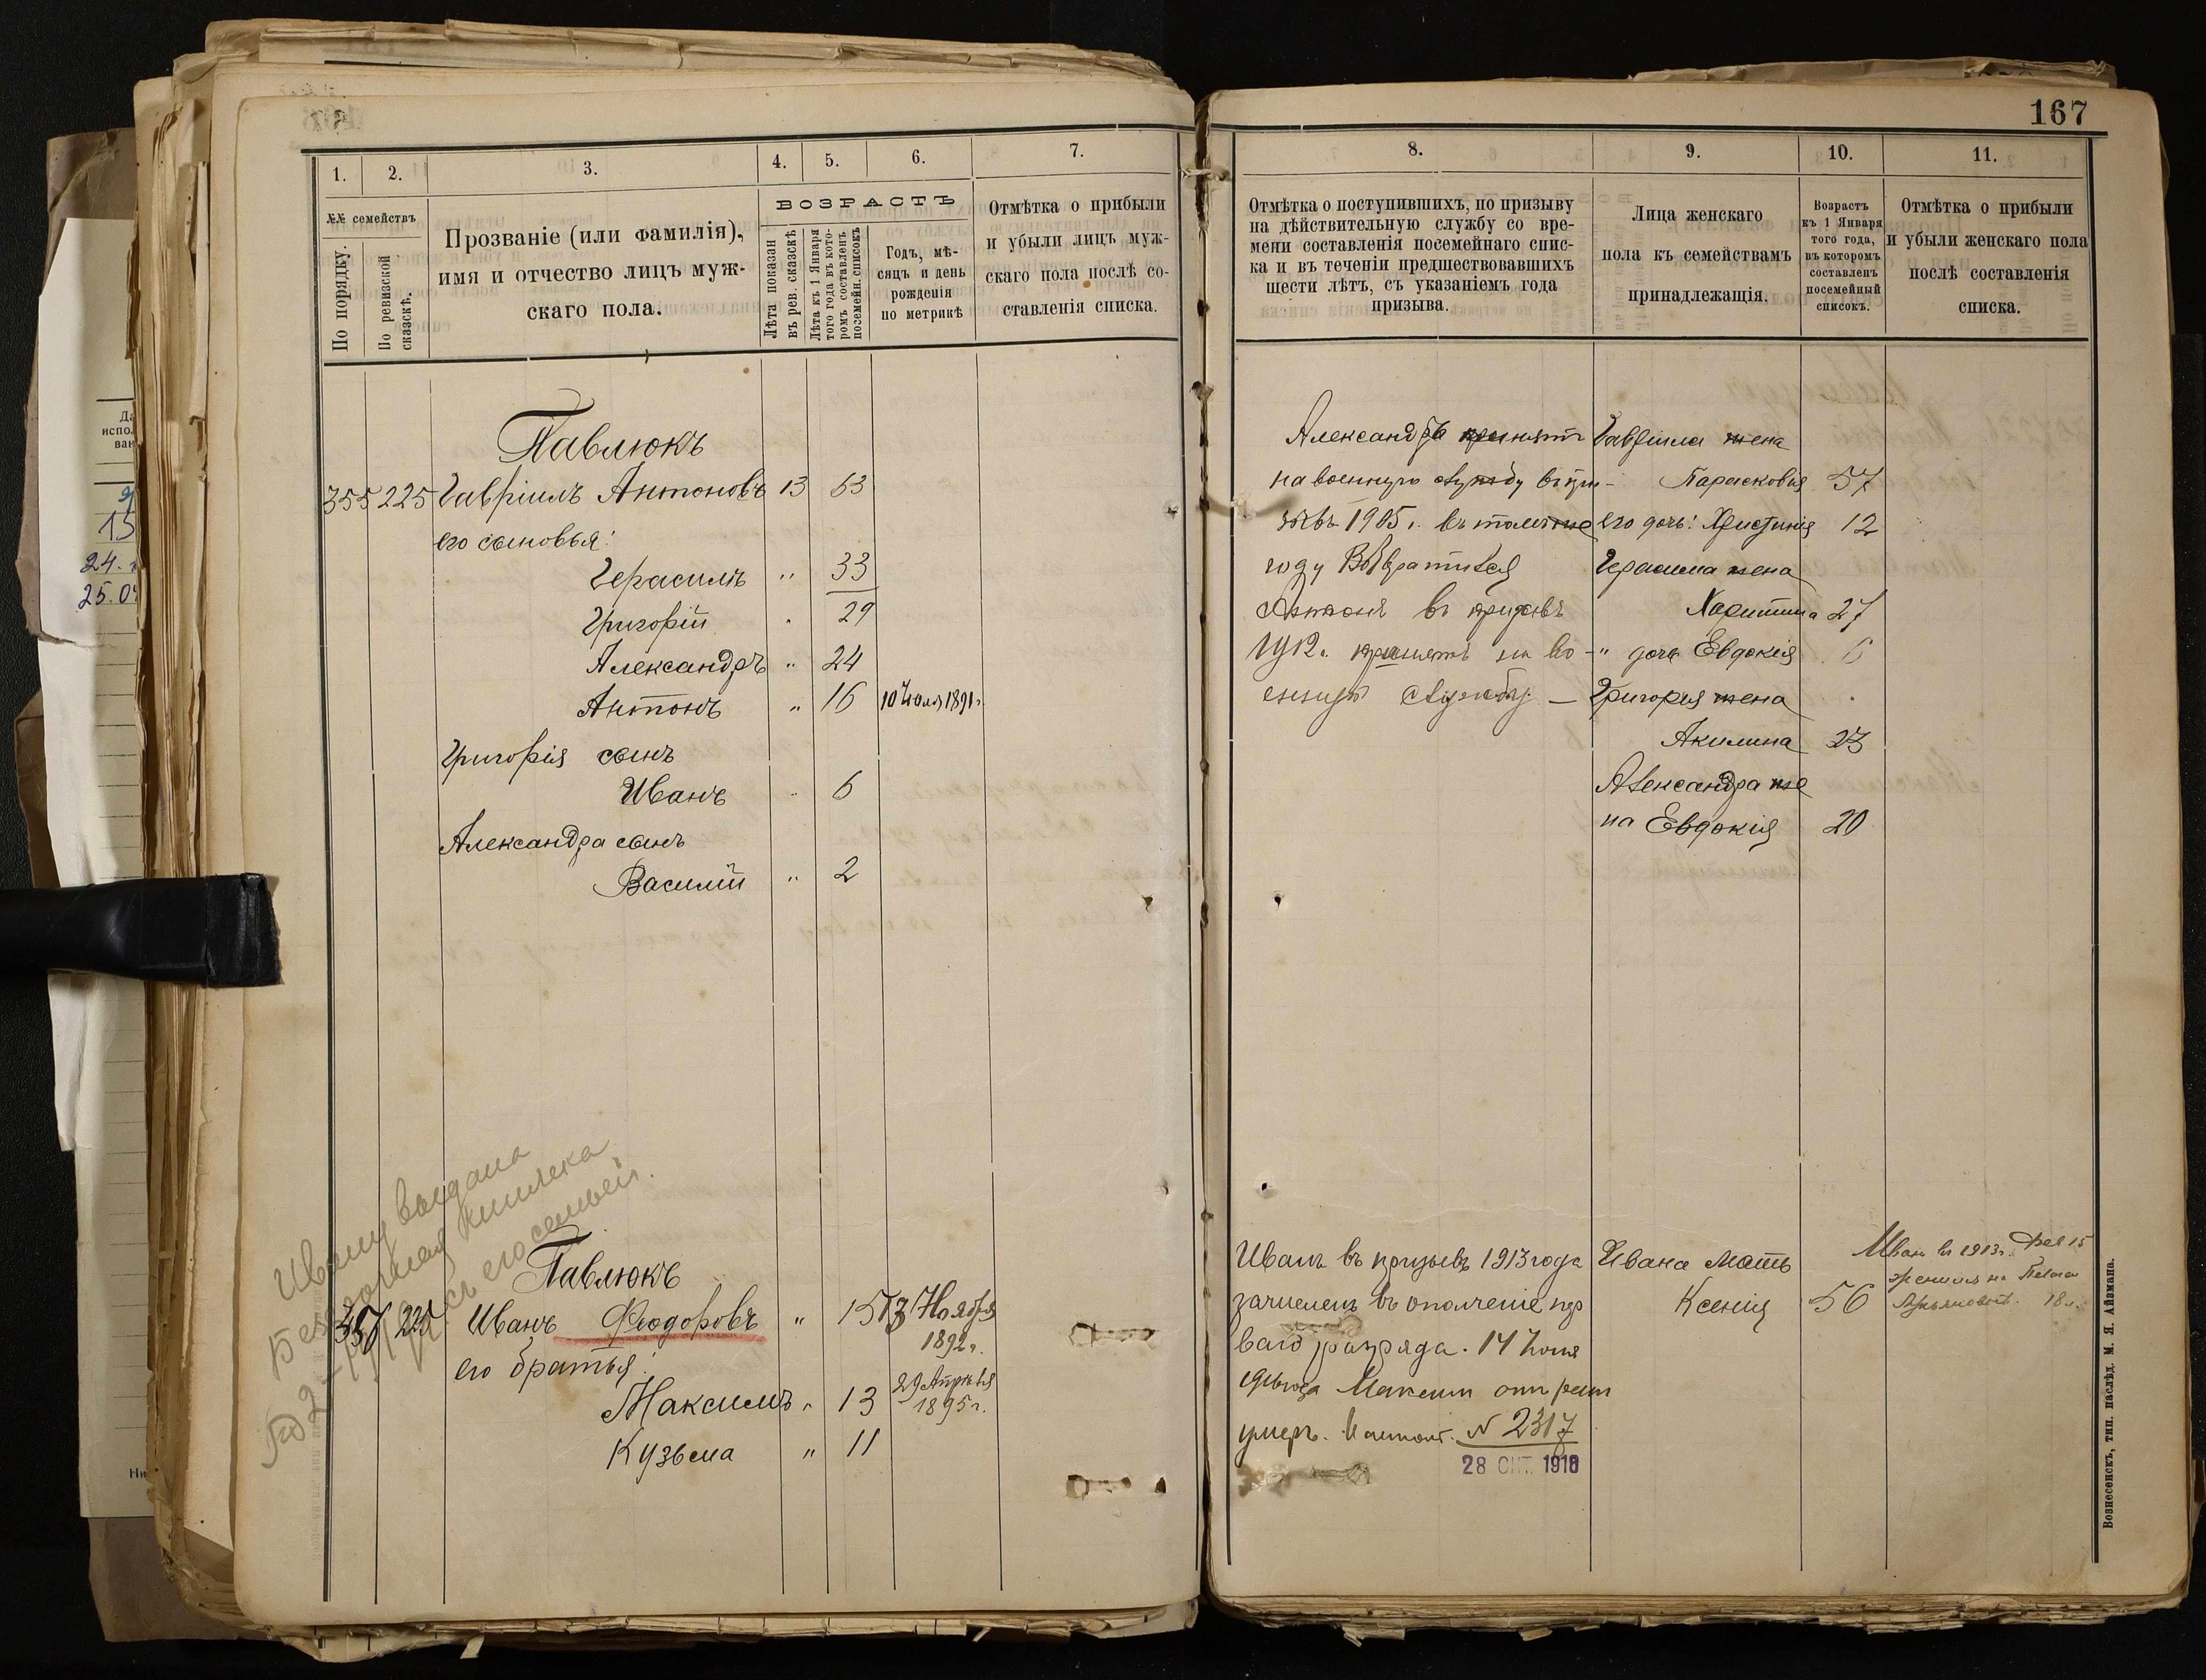 167
1.
2.
3.
4.
5.
6.
7.
№№ семействъ
По порядку.
По ревизской сказскѣ.
Прозваніе (или фамилія),
имя и отчество лицъ муж-
скаго пола.
ВОЗРАСТЪ
Лѣта показан
въ рев. сказскѣ
Лѣта къ 1 Января
того года въ кото-
ромъ составленъ
посемейн. списокъ
Годъ, мѣ-
сяцъ и день
рожденія
по метрикѣ
Отмѣтка о прибыли
и убыли лицъ муж-
скаго пола послѣ со-
ставленія списка.
Павлюкъ
355 225 Гавріилъ Антоновъ 13 63
его сыновья:
Герасимъ " 33
Григорій " 29
Александръ " 24
Антонъ " 16 10 Іюля 1891 г.
Григорія сынъ
Иванъ " 6
Александра сынъ
Василій " 2
Ивану выдана
Безсрочная книжка
съ его семьей.
Павлюкъ
225 Иванъ Феодоровъ " 15 13 Ноября
1892 г.
его братья:
Максимъ " 13 29 Апрѣля
1895 г.
Кузьма " 11
8.
9.
10.
11.
Отмѣтка о поступившихъ, по призыву
на дѣйствительную службу со вре-
мени составленія посемейнаго спис-
ка и въ теченіи предшествовавшихъ
шести лѣтъ, съ указаніемъ года
призыва.
Лица женскаго
пола къ семействамъ
принадлежащія.
Возрастъ
къ 1 Января
того года,
въ которомъ
составленъ
посемейный
списокъ.
Отмѣтка о прибыли
и убыли женскаго пола
послѣ составленія
списка.
Александръ принятъ
на военную службу въ при-
зывъ 1905 г. въ томъ же
году Возвратился
Антонъ въ призывъ
1912 г. принятъ на во-
енную службу —
Гавріила жена
Парасковія 57
его дочь: Христинія 12
Герасима жена
Харитина 27
" дочь Евдокія 6
Григорія жена
Акилина 23
Александра же
на Евдокія 20
Иванъ въ призывъ 1913 года
зачисленъ въ ополченіе пер
ваго разряда. 14 Іюня
Максим
умеръ. № 2317
28 ОКТ. 1916
Ивана Мать
Ксенія 56
Иван въ 1913 г. Фев 15
женился на
18 л.
Вознесенскъ, тип. наслѣд. М. Я. Айзмана.